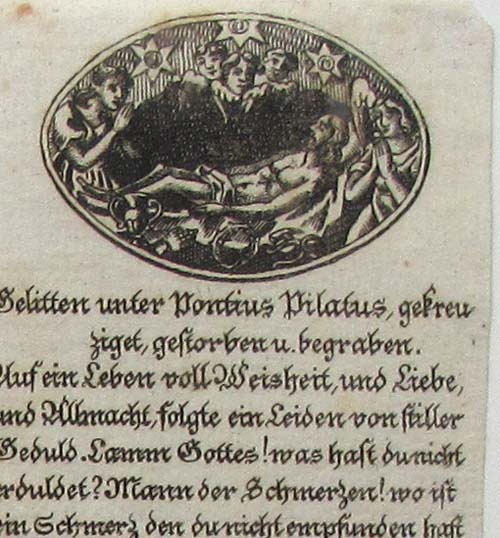 Gelitten unter Pontius Pilatus, gekreu-
ziget, gestorben u. begraben.
Auf ein Leben voll Weisheit, und Liebe,
und Allmacht, folgte ein Leiden von stiller
Geduld. Lamm Gottes! was hast du nicht
erduldet? Mann der Schmerzen! wo ist
ein Schmerz den du nicht empfunden hast